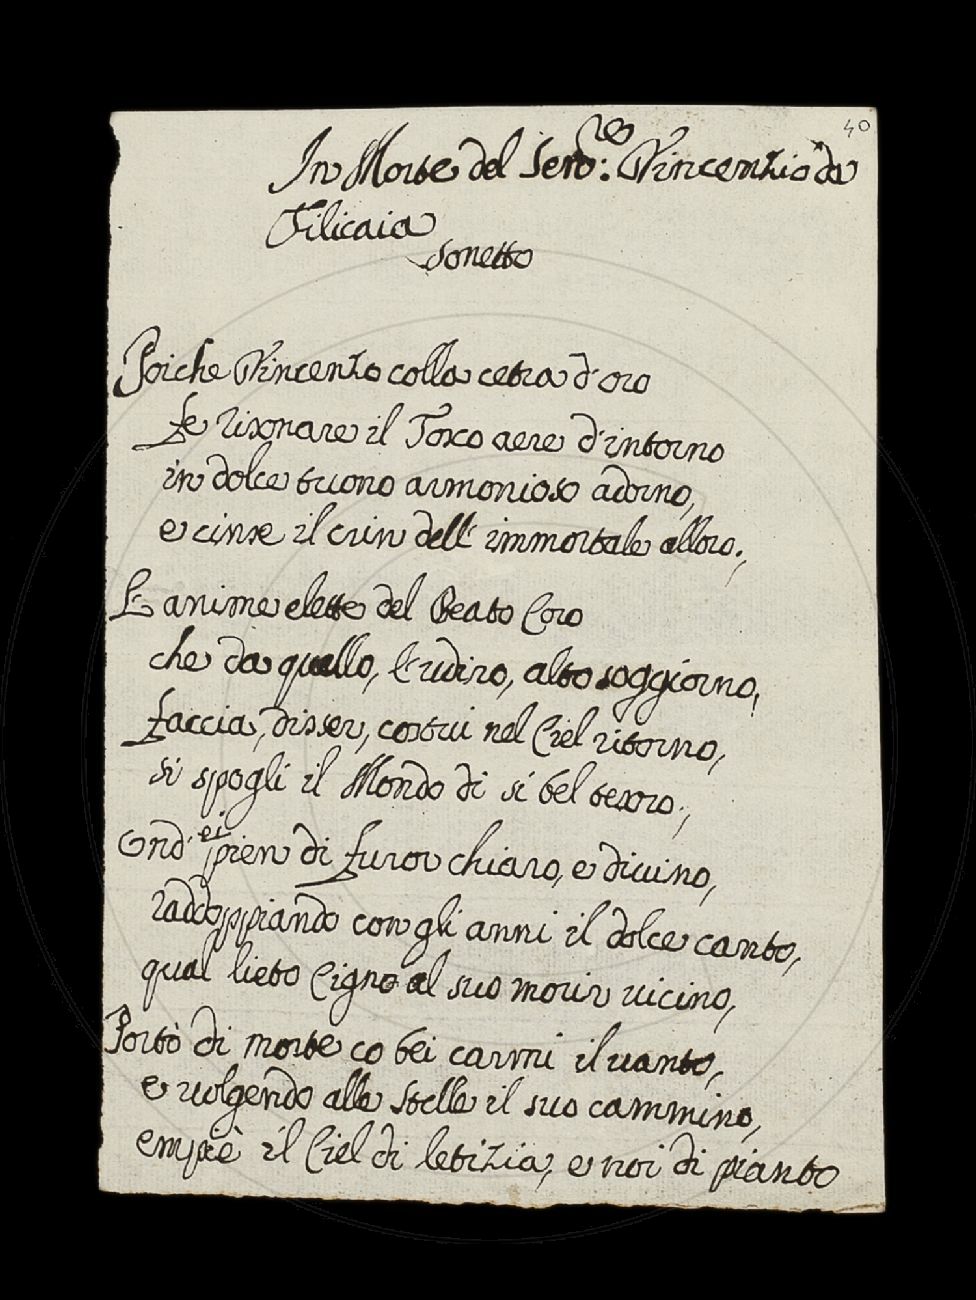 40
In Morte del Sen.re Vincenzio da
Filicaia
Sonetto
Poiche Vincenzo colla cetra d'oro
Fe risonare il Tosco aere d'intorno
in dolce suono armonioso adorno,
e cinse il crin dell'immortale alloro;
L'anime elette del Beato Coro
che da quello, l'udiro, alto soggiorno,
Faccia, disser, costui nel Ciel ritorno,
si spogli il Mondo di sì bel tesoro;
Ond'ei pien di furor chiaro, e divino,
raddoppiando con gli anni il dolce canto,
qual lieto Cigno al suo morir vicino,
Portò di morte co bei carmi il vanto,
e volgendo alle Stelle il suo cammino,
empiè il Ciel di letizia, e noi di pianto